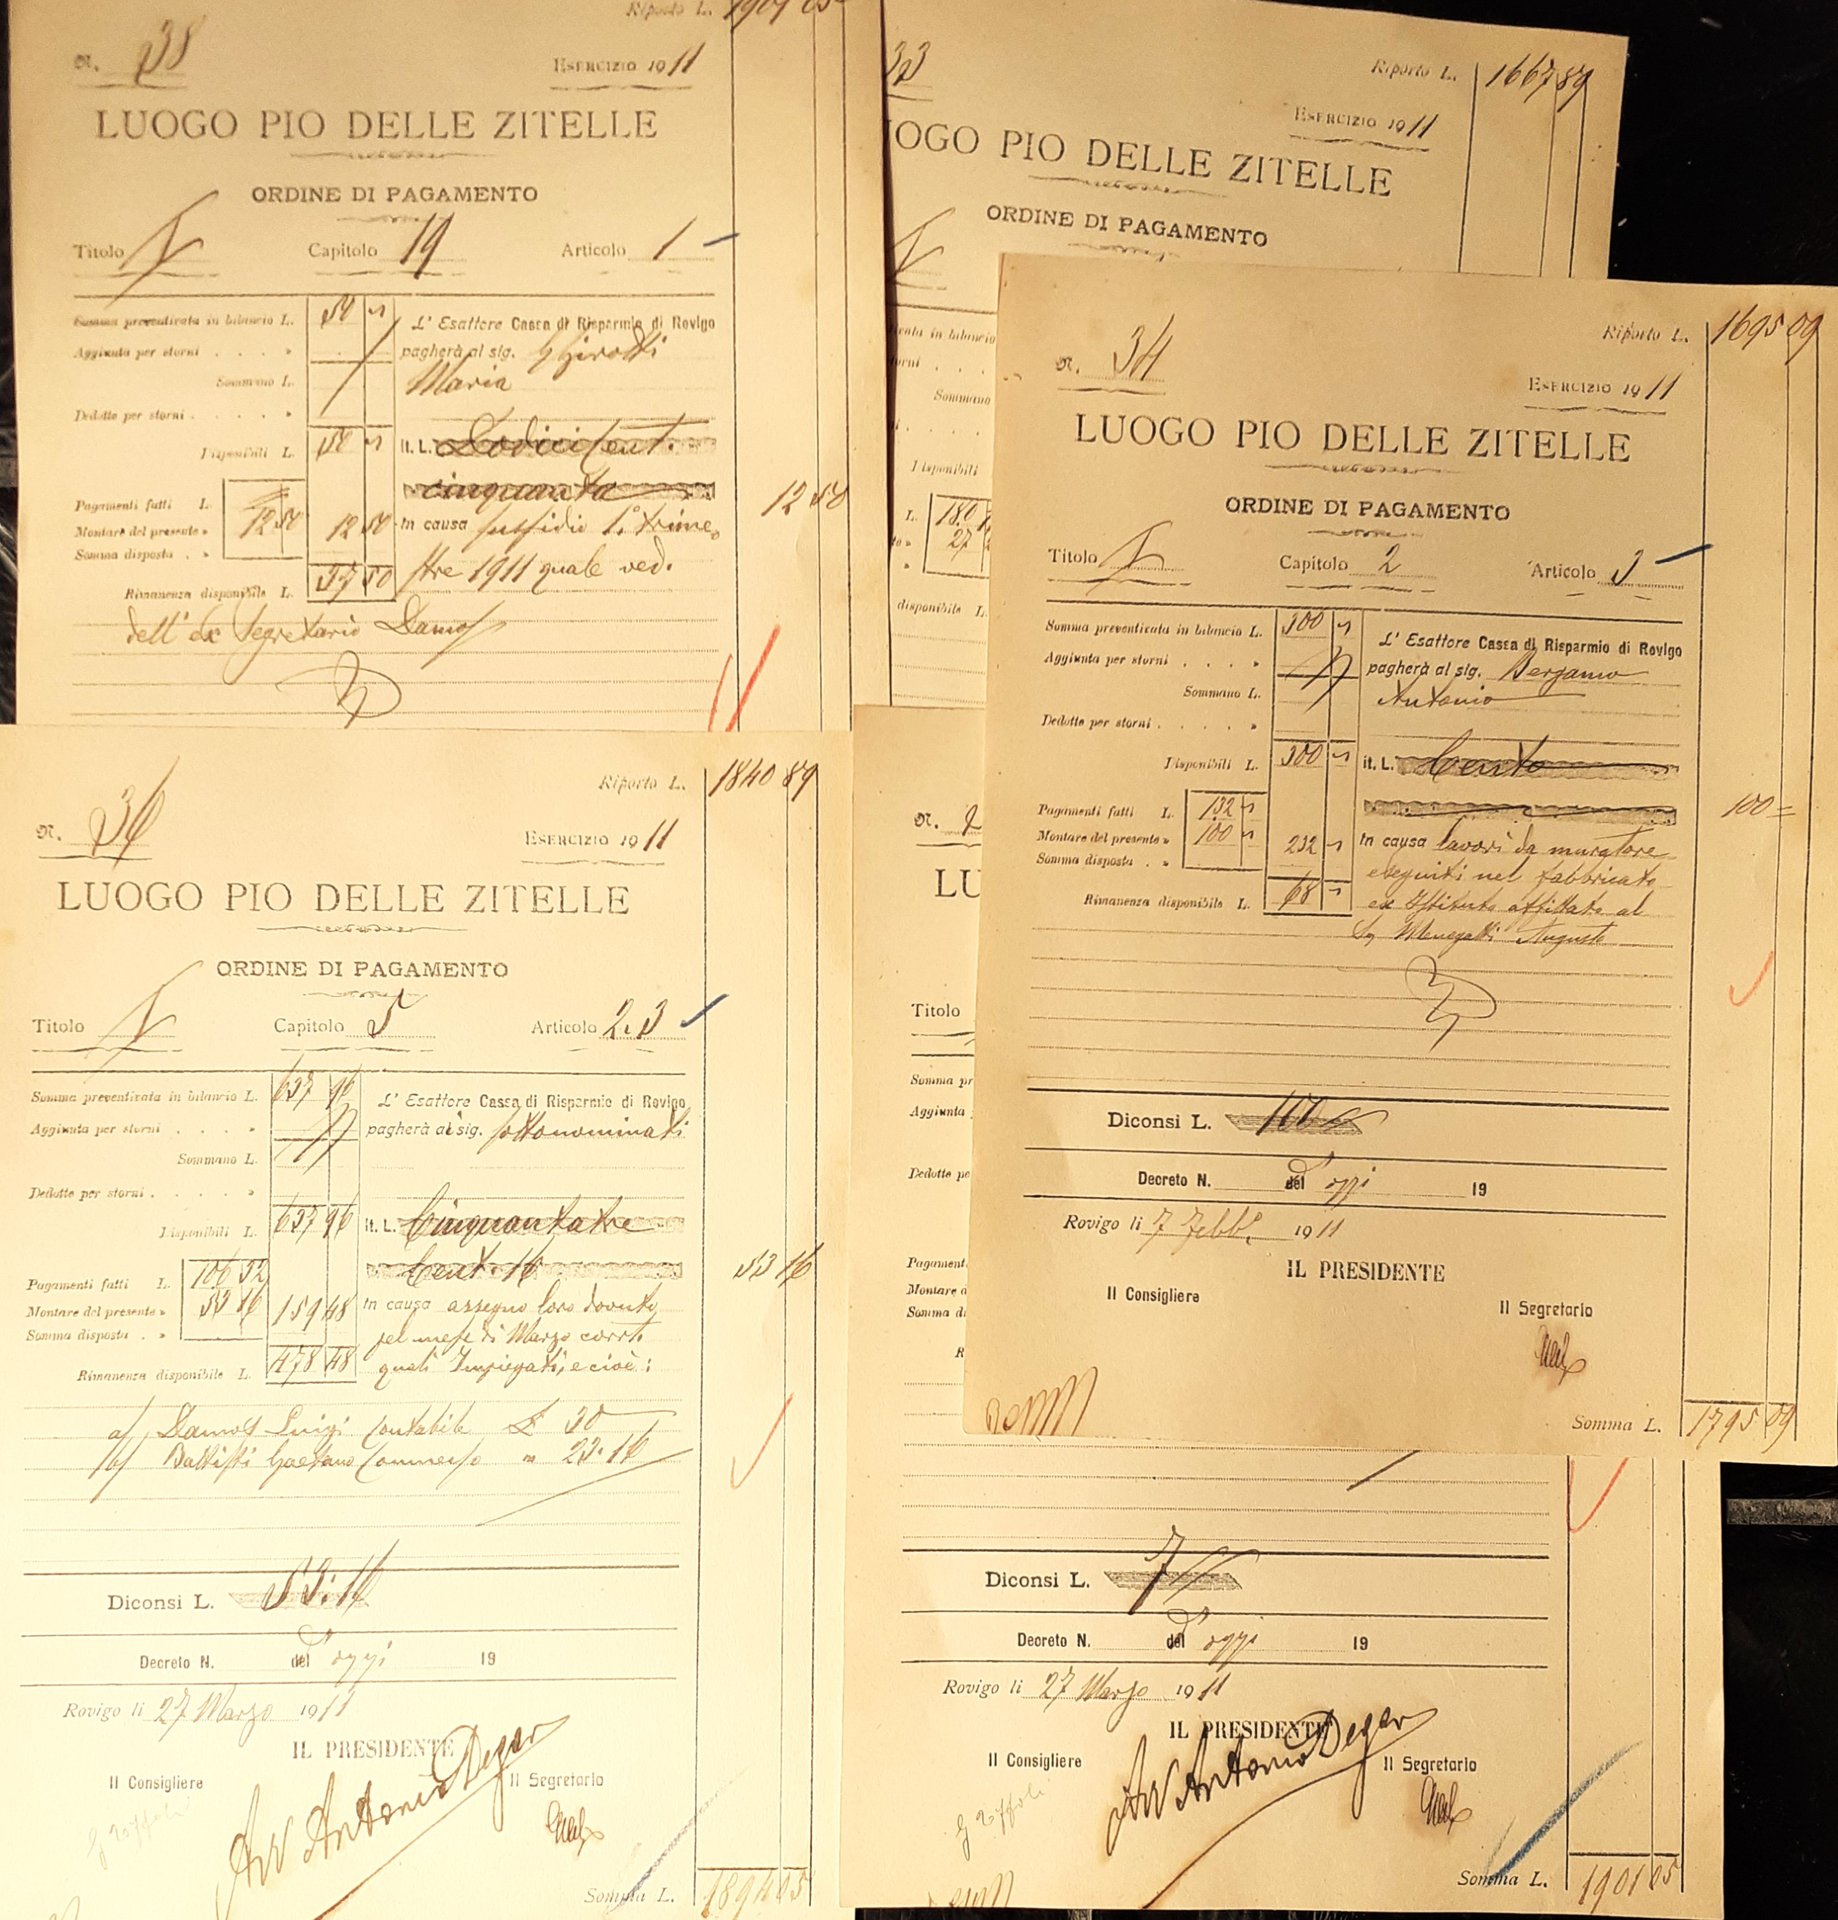 Riporto L. 1901 05
N. 38
ESERCIZIO 1911
LUOGO PIO DELLE ZITELLE
ORDINE DI PAGAMENTO
Titolo I Capitolo 19 Articolo 1
Somma preventivata in bilancio L. 50
L' Esattore Cassa di Risparmio di Rovigo
Aggiunta per storni . . . . »
pagherà al sig. Ghirotti
Sommano L.
Maria
Dedotte per storni . . . . . »
Disponibili L. 50
it. L. Dodici Cent.
cinquanta
12 50
Pagamenti fatti L.
Montare del presente » 12 50 12 50
In causa sussidio 1° trime-
Somma disposta . »
stre 1911 quale ved.
Rimanenza disponibile L. 37 50
dell' ex Segretario
33
Riporto L. 1667 89
ESERCIZIO 1911
OGO PIO DELLE ZITELLE
ORDINE DI PAGAMENTO
I
ata in bilancio
orni . . .
Sommano
Disponibili
L. 180
to » 27
»
disponibile L.
Riporto L. 1695 09
N. 34
ESERCIZIO 1911
LUOGO PIO DELLE ZITELLE
ORDINE DI PAGAMENTO
Titolo I Capitolo 2 Articolo 3
Somma preventivata in bilancio L. 300
L' Esattore Cassa di Risparmio di Rovigo
Aggiunta per storni . . . . »
pagherà al sig. Bergamo
Sommano L.
Antonio
Dedotte per storni . . . . . »
Disponibili L. 300
it. L. Cento
100 =
Pagamenti fatti L. 132
Montare del presente » 100 232
In causa lavori da muratore
Somma disposta . »
eseguiti nel fabbricato
Rimanenza disponibile L. 68
ex Istituto affittato al
Sig Menegatti Augusto
Diconsi L. 100
Decreto N. del d'oggi 19
Rovigo li 7 Febb. 1911
IL PRESIDENTE
Il Consigliere
Il Segretario
Somma L. 1795 09
Riporto L. 1840 89
N. 36
ESERCIZIO 1911
LUOGO PIO DELLE ZITELLE
ORDINE DI PAGAMENTO
Titolo I Capitolo 5 Articolo 2.3
Somma preventivata in bilancio L. 637 96
L' Esattore Cassa di Risparmio di Rovigo
Aggiunta per storni . . . . »
pagherà ai sig. sottonominati
Sommano L.
Dedotte per storni . . . . . »
Disponibili L. 637 96
it. L. Cinquantatre
Cent. 16
53 16
Pagamenti fatti L. 106 32
Montare del presente » 53 16 159 48
In causa assegno loro dovuto
Somma disposta . »
pel mese di Marzo corrte
Rimanenza disponibile L. 478 48
quali Impiegati, e cioè:
a/ Luigi Contabile L 30
b/ Battisti Gaetano Commesso " 23.16
Diconsi L. 53.16
Decreto N. del d'oggi 19
Rovigo li 27 Marzo 1911
IL PRESIDENTE
Il Consigliere
Avv Antonio Deger
Il Segretario
Somma L. 1894 05
N.
LU
Titolo
Somma pr
Aggiunta
Dedotte pe
Pagament
Montare d
Somma di
R
Diconsi L. 7
Decreto N. del d'oggi 19
Rovigo li 27 Marzo 1911
IL PRESIDENTE
Il Consigliere
Avv Antonio Deger
Il Segretario
Somma L. 1901 05